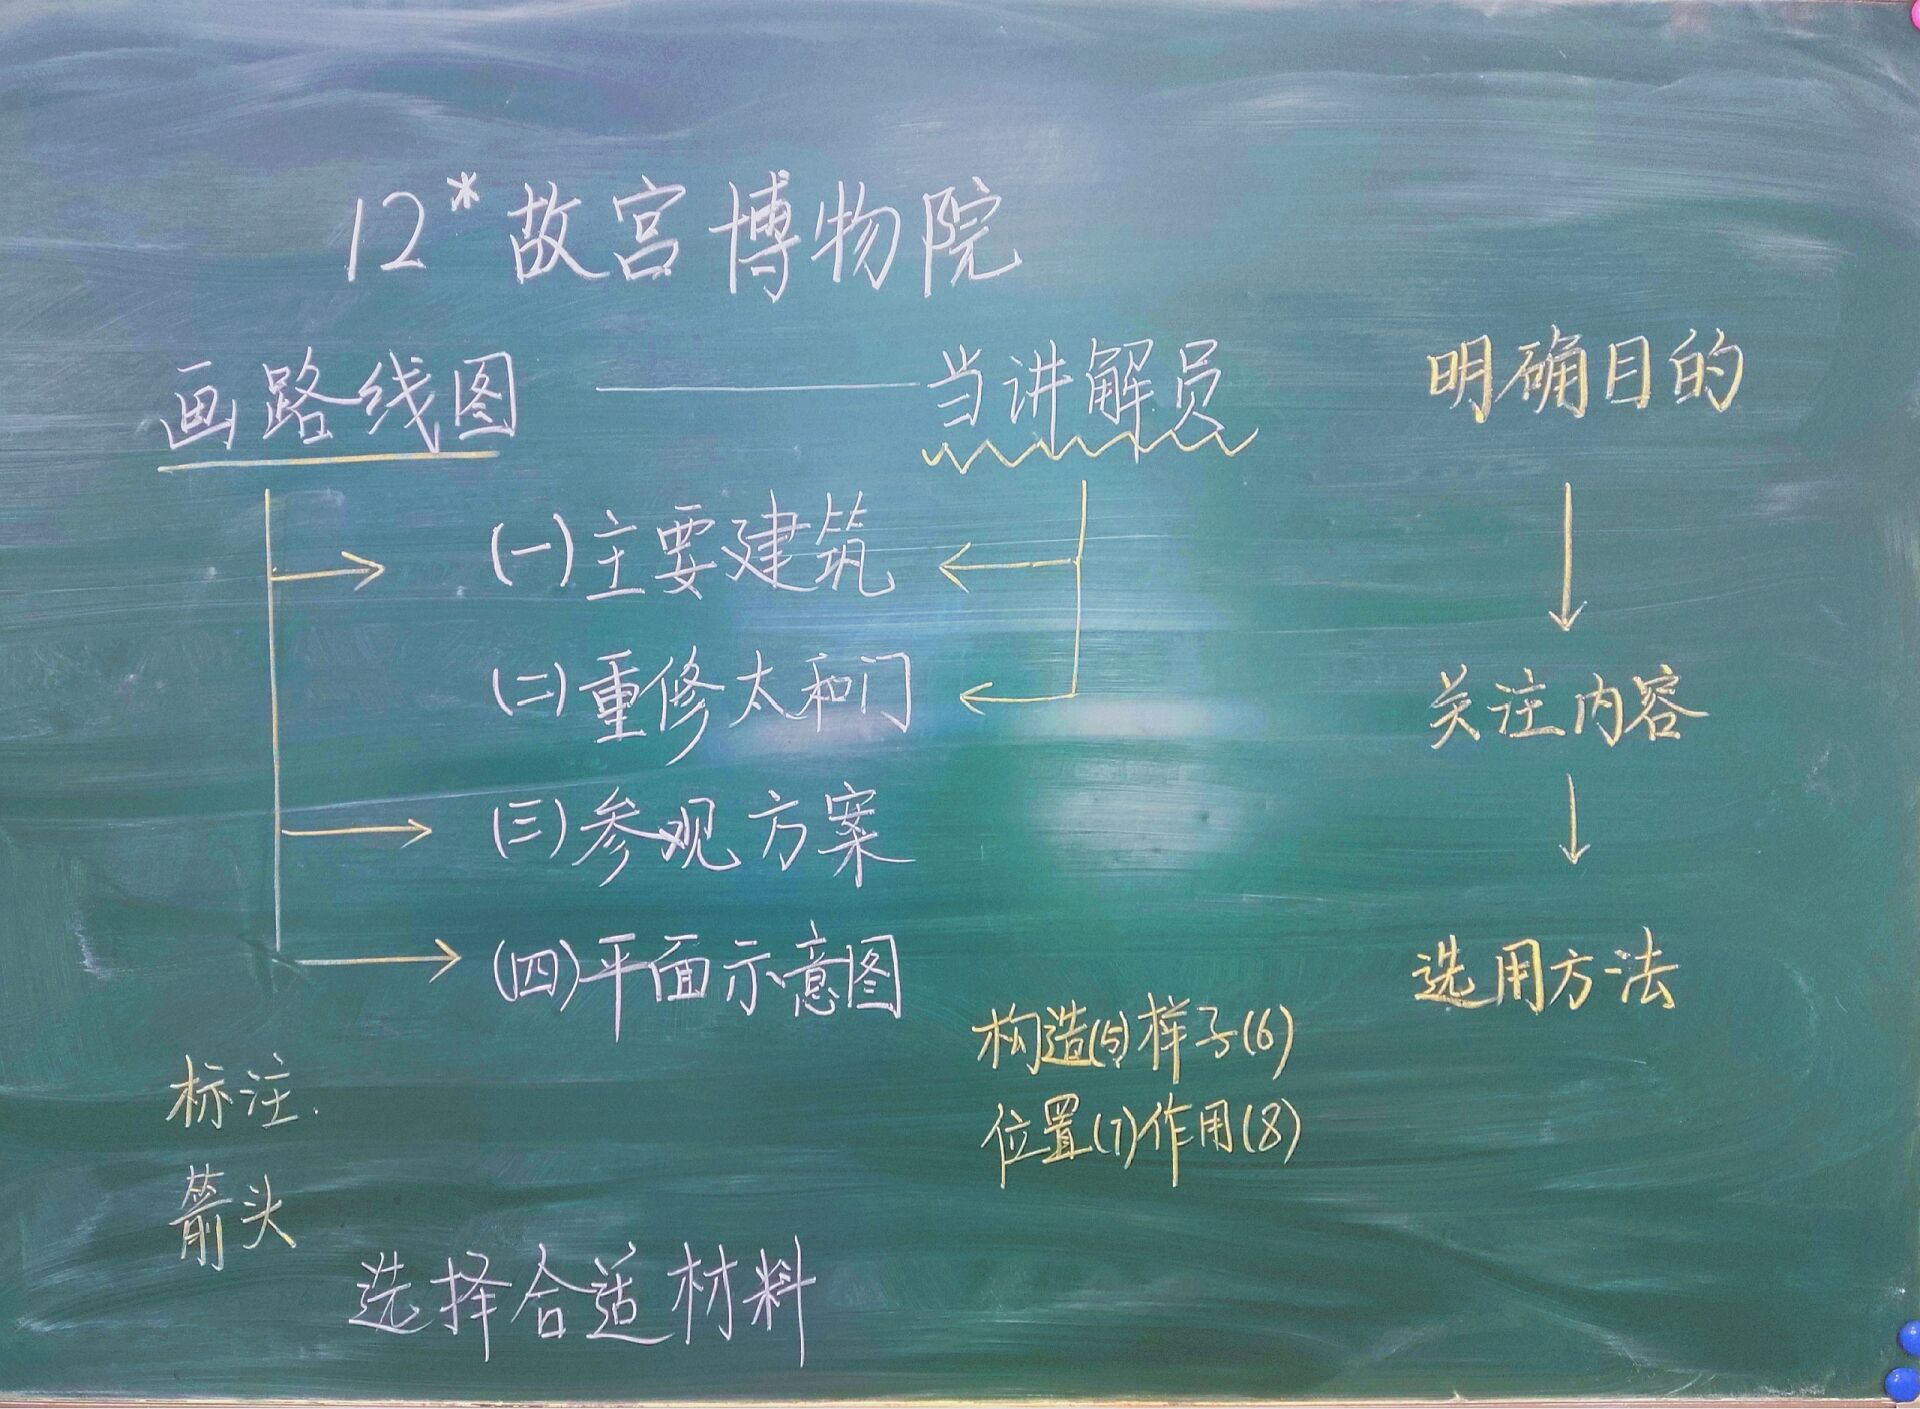 12*故宫博物院
画路线图 当讲解员 明确目的
(一)主要建筑
(二)重修太和门 关注内容
(三)参观方案
(四)平面示意图 选用方法
构造(5)样子(6)
标注.
位置(7)作用(8)
箭头
选择合适材料